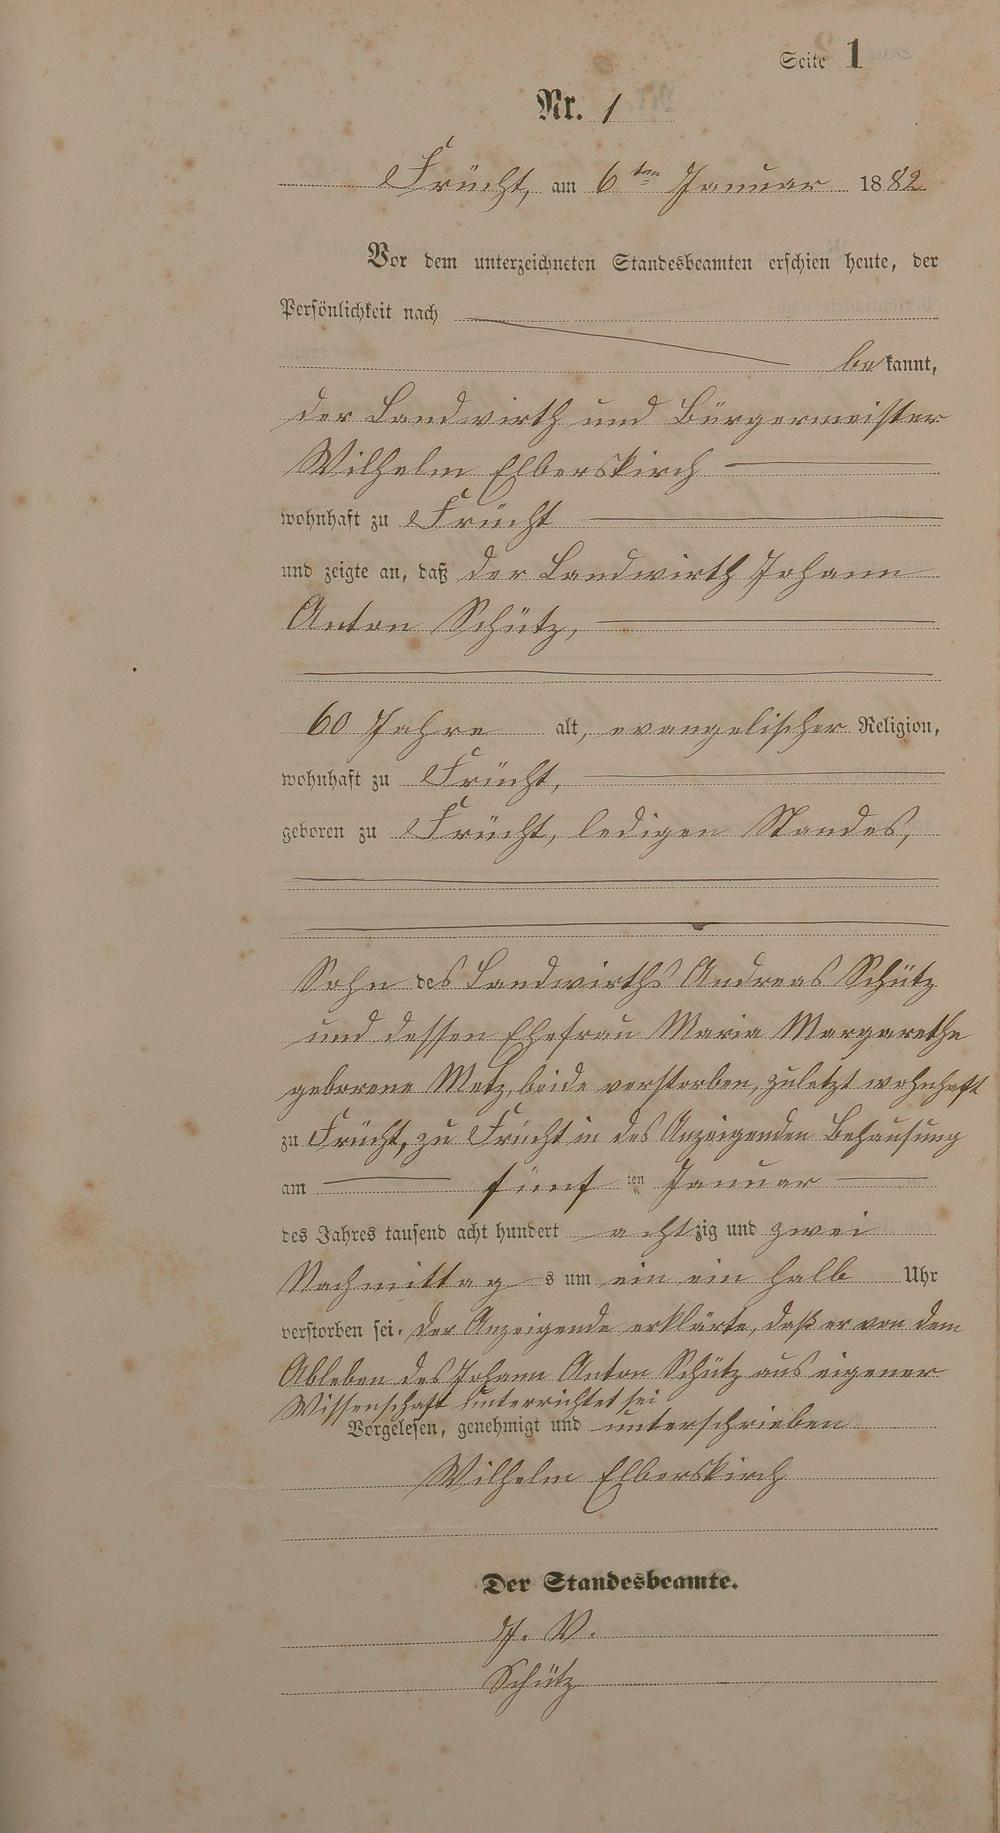 Seite 1
Nr. 1
Frücht, am 6ten Januar 1882
Vor dem unterzeichneten Standesbeamten erschien heute, der
Persönlichkeit nach
bekannt,
der Landwirth und Bürgermeister
Wilhelm Elberskirch
wohnhaft zu Frücht
und zeigte an, daß der Landwirth Johann
Anton Schütz,
60 Jahre alt, evangelischer Religion,
wohnhaft zu Frücht,
geboren zu Frücht, ledigen Standes,
Sohn des Landwirths Andreas Schütz
und dessen Ehefrau Maria Margarethe
geborene Metz, beide verstorben, zuletzt wohnhaft
zu Frücht, zu Frücht in des Anzeigenden Behausung
am fünften Januar
des Jahres tausend acht hundert achtzig und zwei
Nachmittags um ein ein halb Uhr
verstorben sei. Der Anzeigende erklärte, daß er von dem
Ableben des Johann Anton Schütz aus eigener
Wissenschaft unterrichtet sei
Vorgelesen, genehmigt und unterschrieben
Wilhelm Elberskirch
Der Standesbeamte.
J. V.
Schütz